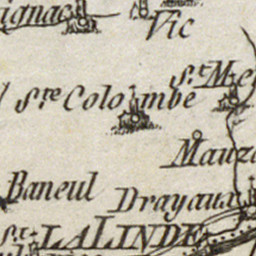 ignac
Vic
S.t M
Ste Colombe
Mauz
Baneul
Drayaux
St.
LALINDE